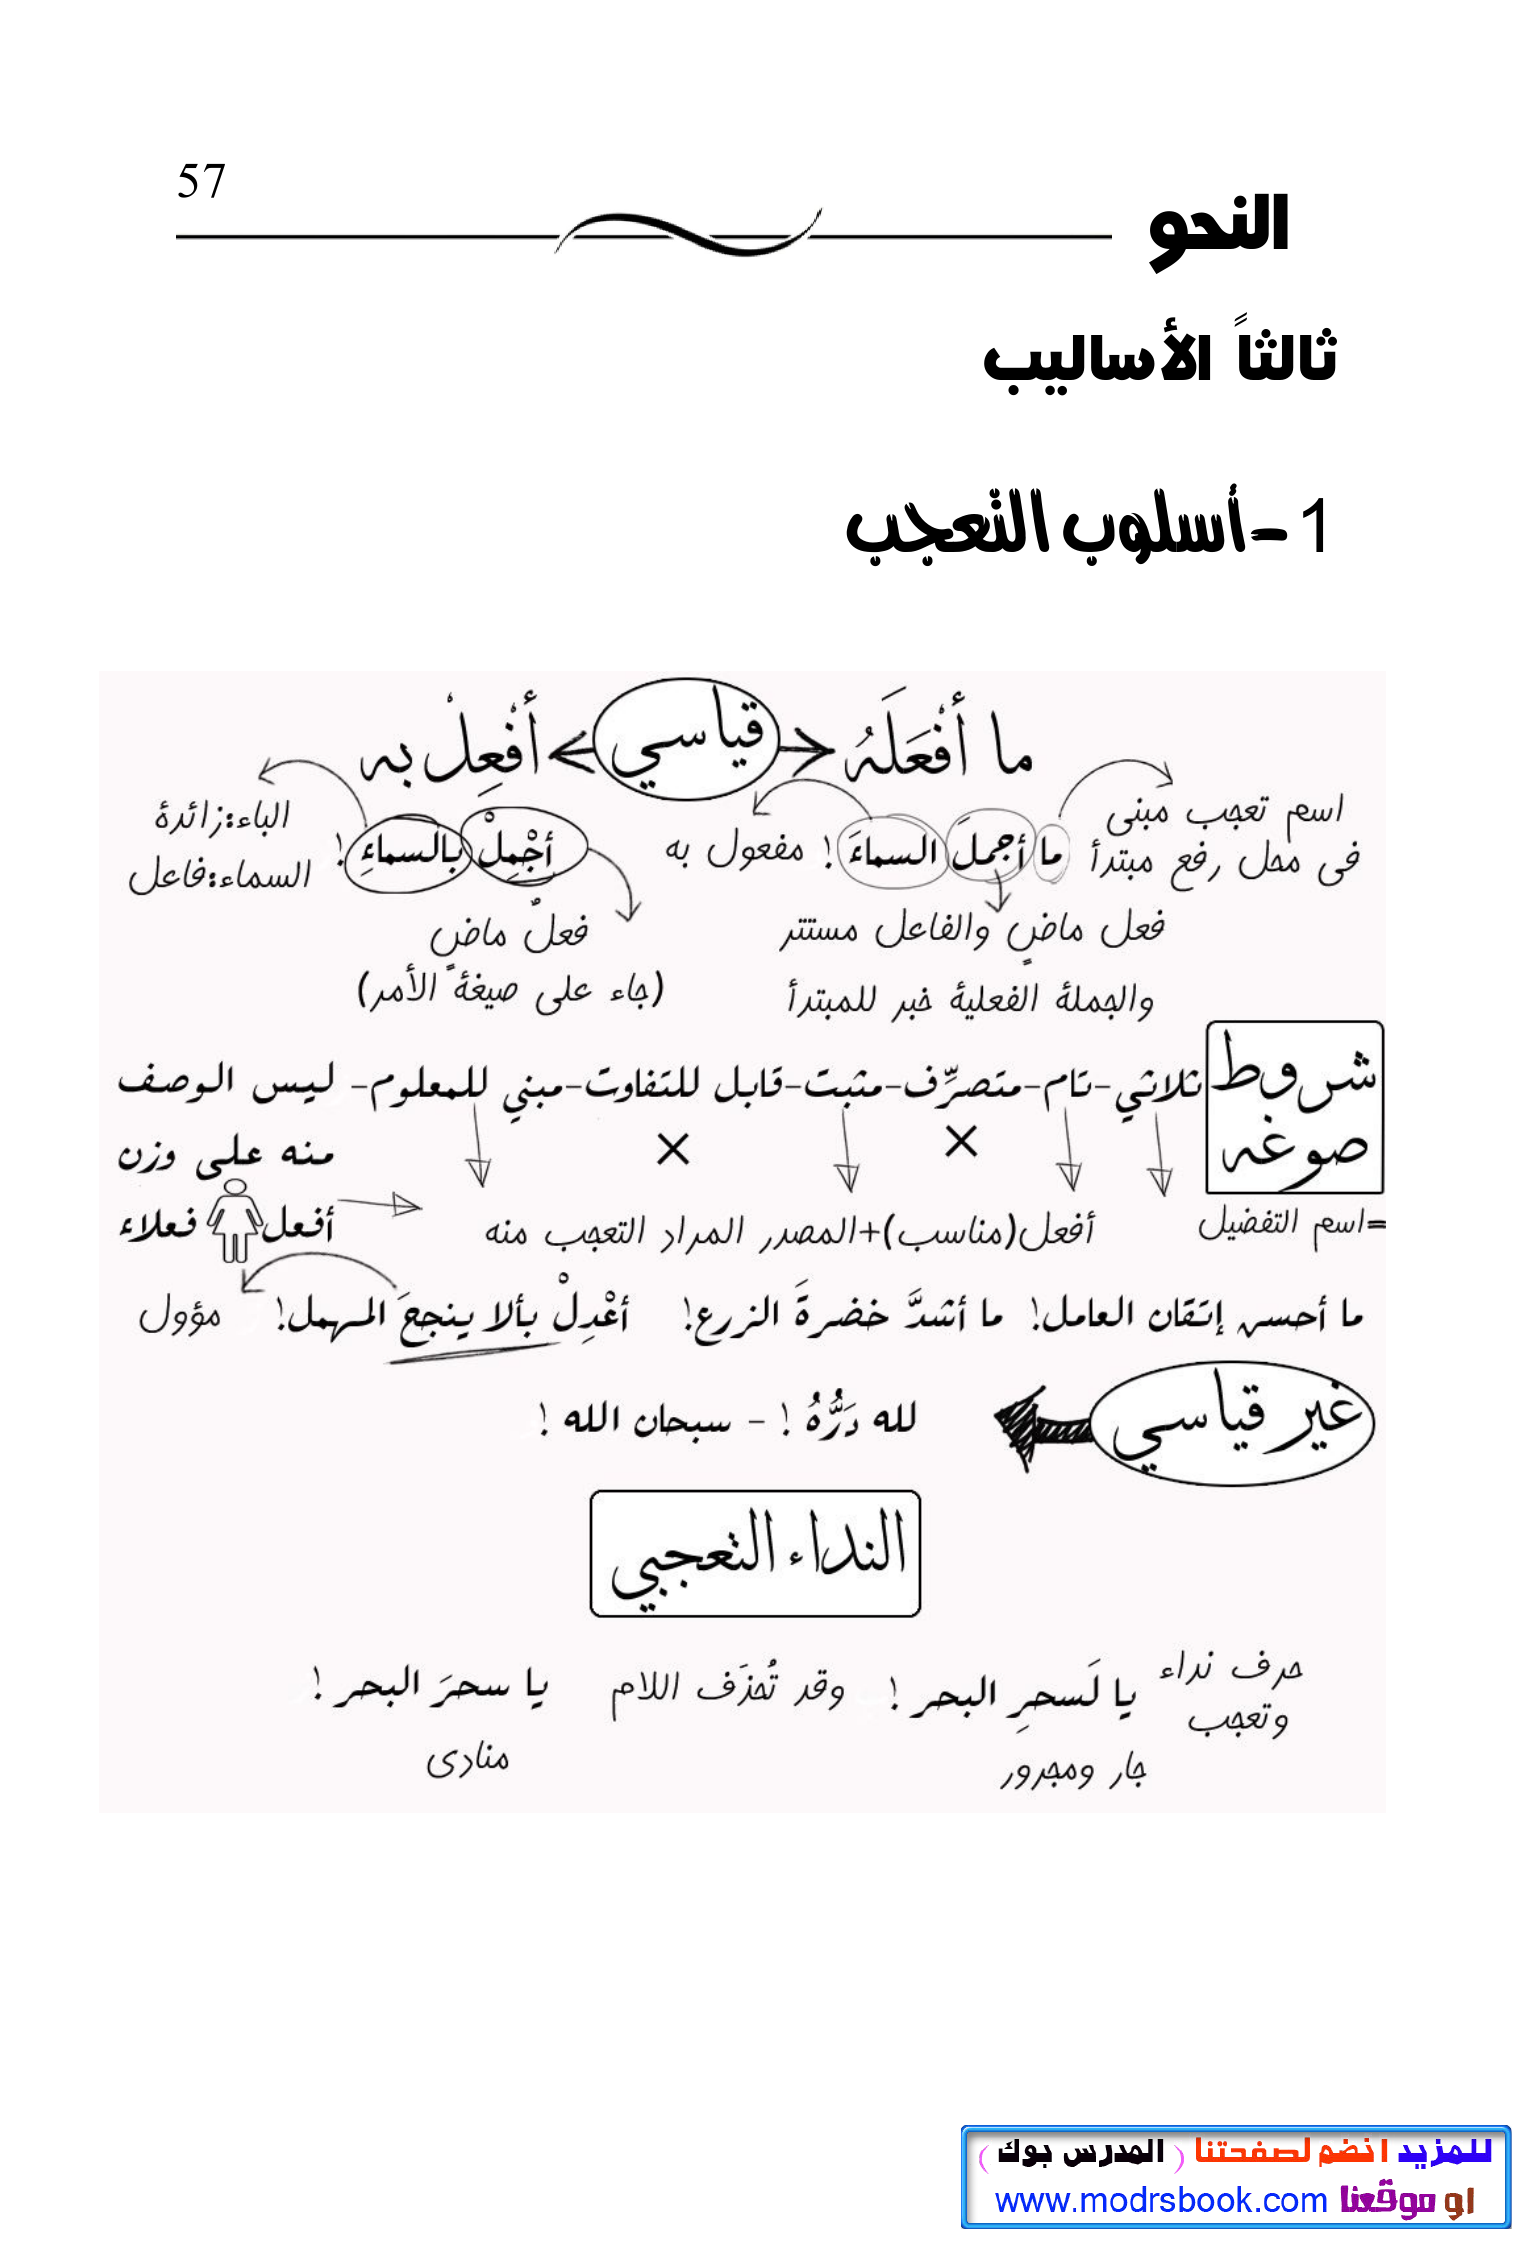 57
النحو
ثالثاً الأساليب
1 -أسلوب التعجب
ما أفْعَلَهُ قياسي أفْعِلْ به
اسم تعجب مبنى
فى محل رفع مبتدأ
ما أجملَ السماءَ ! مفعول به
أجْمِلْ بالسماءِ !
الباء:زائدة
السماء:فاعل
فعل ماضٍ والفاعل مستتر
والجملة الفعلية خبر للمبتدأ
فعلٌ ماضٍ
(جاء على صيغة الأمر)
شروط
صوغه
ثلاثي-تام-متصرِّف-مثبت-قابل للتفاوت-مبني للمعلوم- ليس الوصف
منه على وزن
أفعل فعلاء
=اسم التفضيل
أفعل(مناسب)+المصدر المراد التعجب منه
ما أحسن إتقان العامل! ما أشدَّ خضرةَ الزرع! أعْدِلْ بألا ينجحَ المهمل! مؤول
غير قياسي
لله دَرُّهُ ! - سبحان الله !
النداء التعجبي
حرف نداء
وتعجب
يا لَسحرِ البحر ! وقد تُحذَف اللام يا سحرَ البحر !
جار ومجرور
منادى
للمزيد انضم لصفحتنا ( المدرس بوك )
او موقعنا www.modrsbook.com